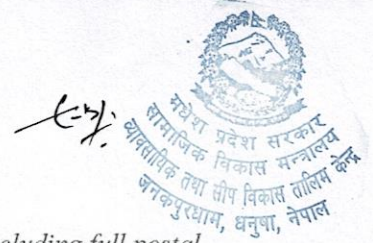 मधेश प्रदेश सरकार
सामाजिक विकास मन्त्रालय
व्यावसायिक तथा सीप विकास तालिम केन्द्र
जनकपुरधाम, धनुषा, नेपाल
cluding full postal